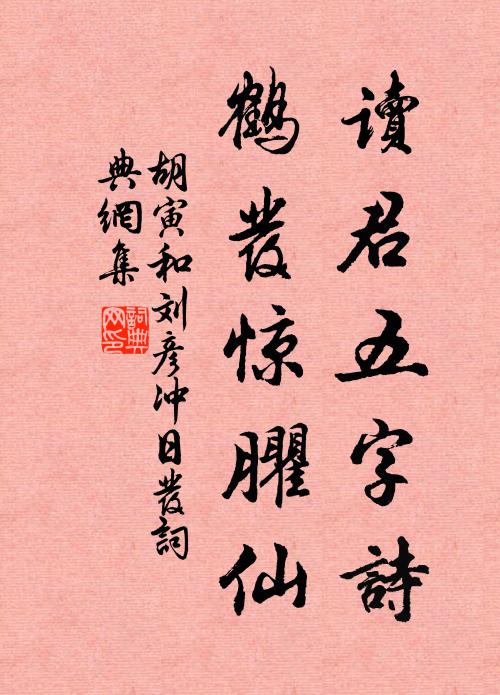 讀君五字詩
鶴發惊臞仙
胡寅和刘彥冲日發詞
典網集
詞典网印